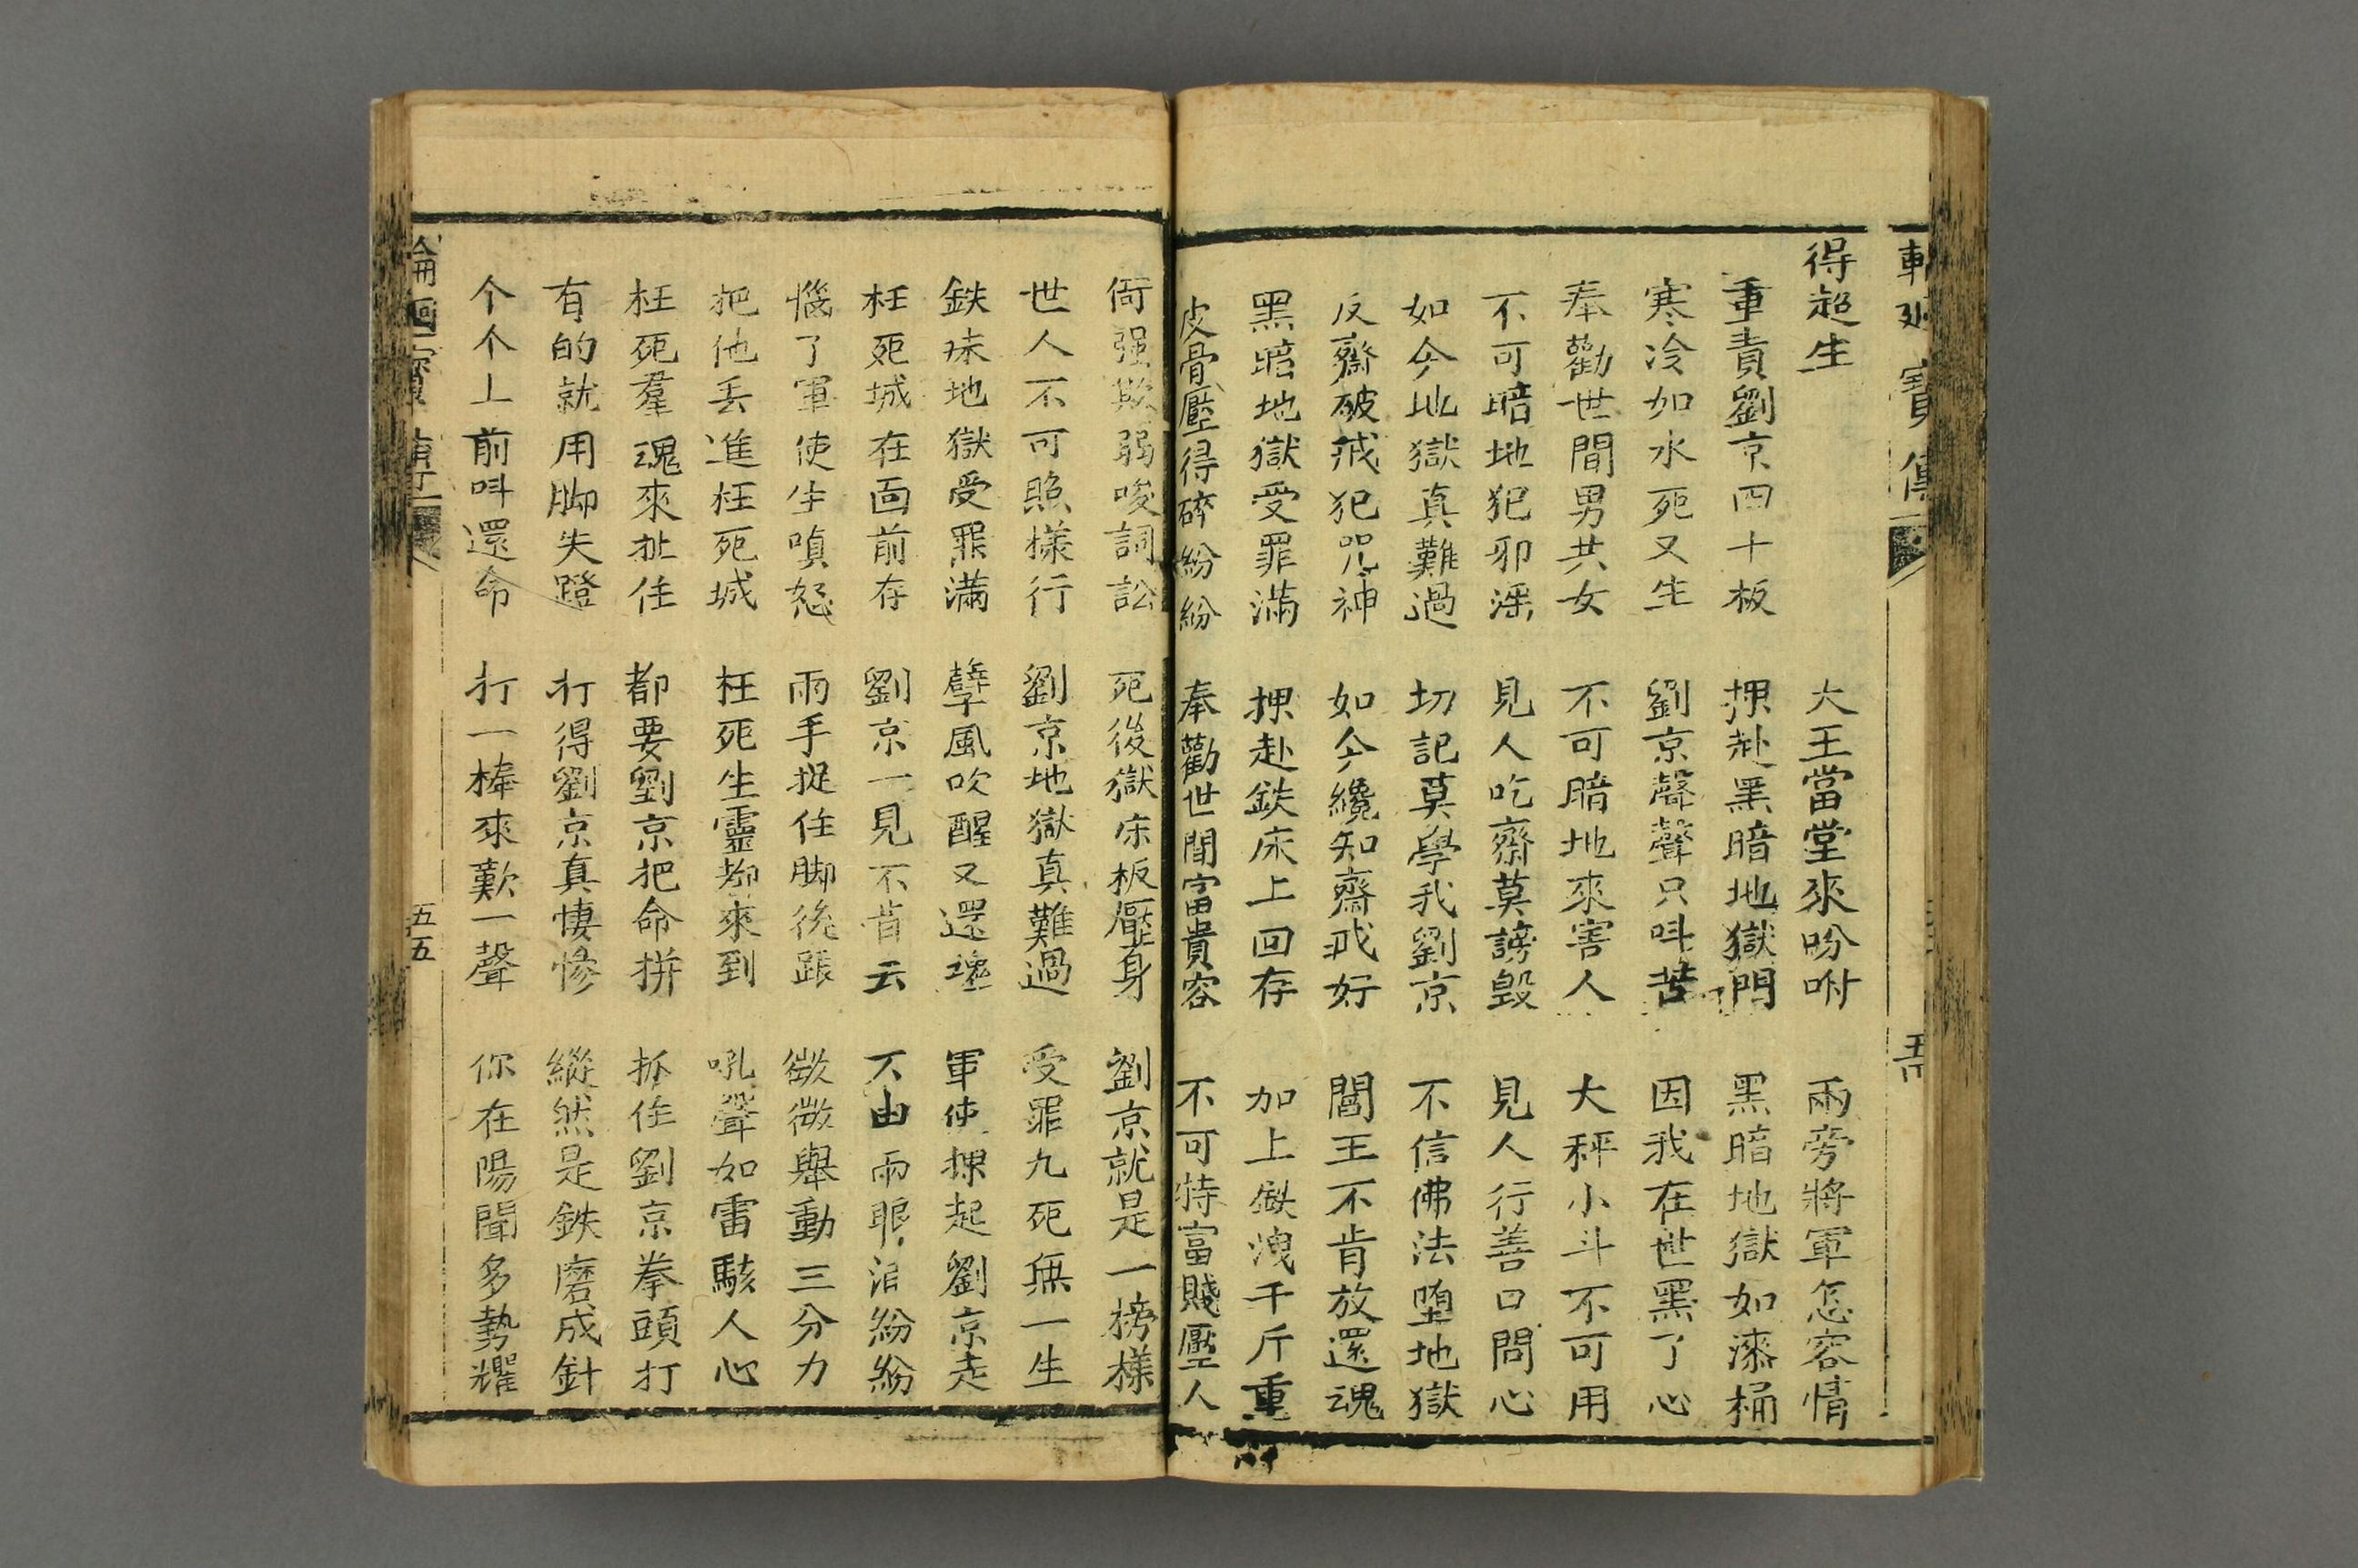 得超生 大王當堂來吩咐 兩旁將軍怎容情
重責劉京四十板 押赴黑暗地獄門 黑暗地獄如漆桶
寒冷如水死又生 劉京聲聲只呌苦 因我在世黑了心
奉勸世間男共女 不可暗地來害人 大秤小斗不可用
不可暗地犯邪淫 見人吃齋莫謗毀 見人行善口問心
如今地獄真難過 切記莫學我劉京 不信佛法墮地獄
反齋破戒犯咒神 如今纔知齋戒好 閻王不肯放還魂
黑暗地獄受罪滿 押赴鉄床上回存 加上鉄洩千斤重
皮骨壓得碎紛紛 奉勸世間富貴客 不可恃富賤壓人
倚强欺弱唆詞訟 死後獄床板壓身 劉京就是一榜樣
世人不可照樣行 劉京地獄真難過 受罪九死無一生
鉄床地獄受罪滿 孽風吹醒又還魂 軍使押起劉京走
枉死城在面前存 劉京一見不肯云 不由兩眼泪紛紛
惱了軍使生嗔怒 兩手捉住脚後跟 微微舉動三分力
把他丢進枉死城 枉死生靈都來到 吼聲如雷駭人心
枉死羣魂來扯住 都要劉京把命拚 抓住劉京拳頭打
有的就用脚失蹬 打得劉京真悽慘 縱然是鉄磨成針
个个上前呌還命 打一棒來歎一聲 你在陽間多勢耀
輪廻寶傳 五五